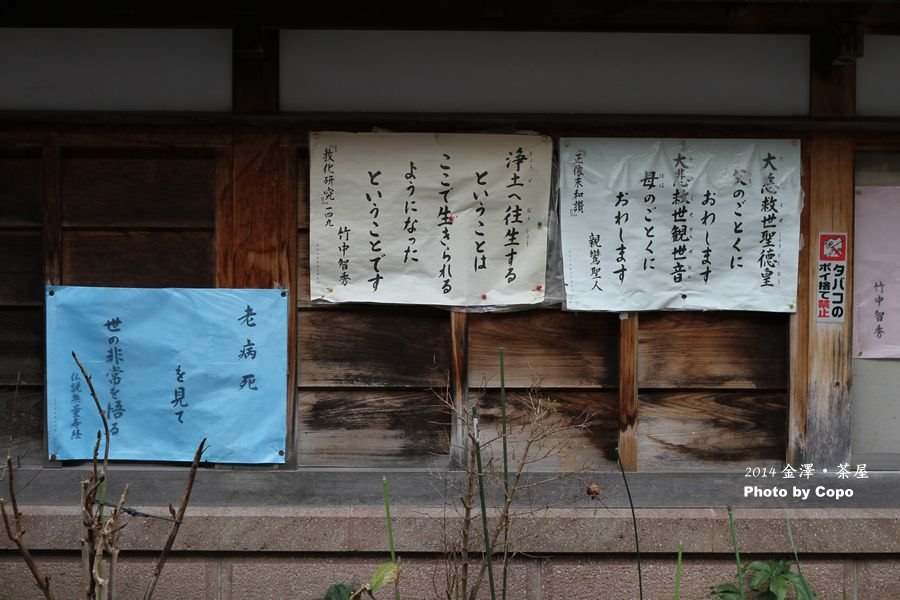 大慈救世聖徳皇
父のごとくに
おわします
大悲救世観世音
母のごとくに
おわします
『正像末和讃』
親鸞聖人
浄土へ往生する
ということは
ここで生きられる
ようになった
ということです
『教化研究』一四九
竹中智秀
老病死
を見て
世の非常を悟る
仏説無量寿経
タバコの
ポイ捨て禁止
竹中智秀
2014 金澤・茶屋
Photo by Copo